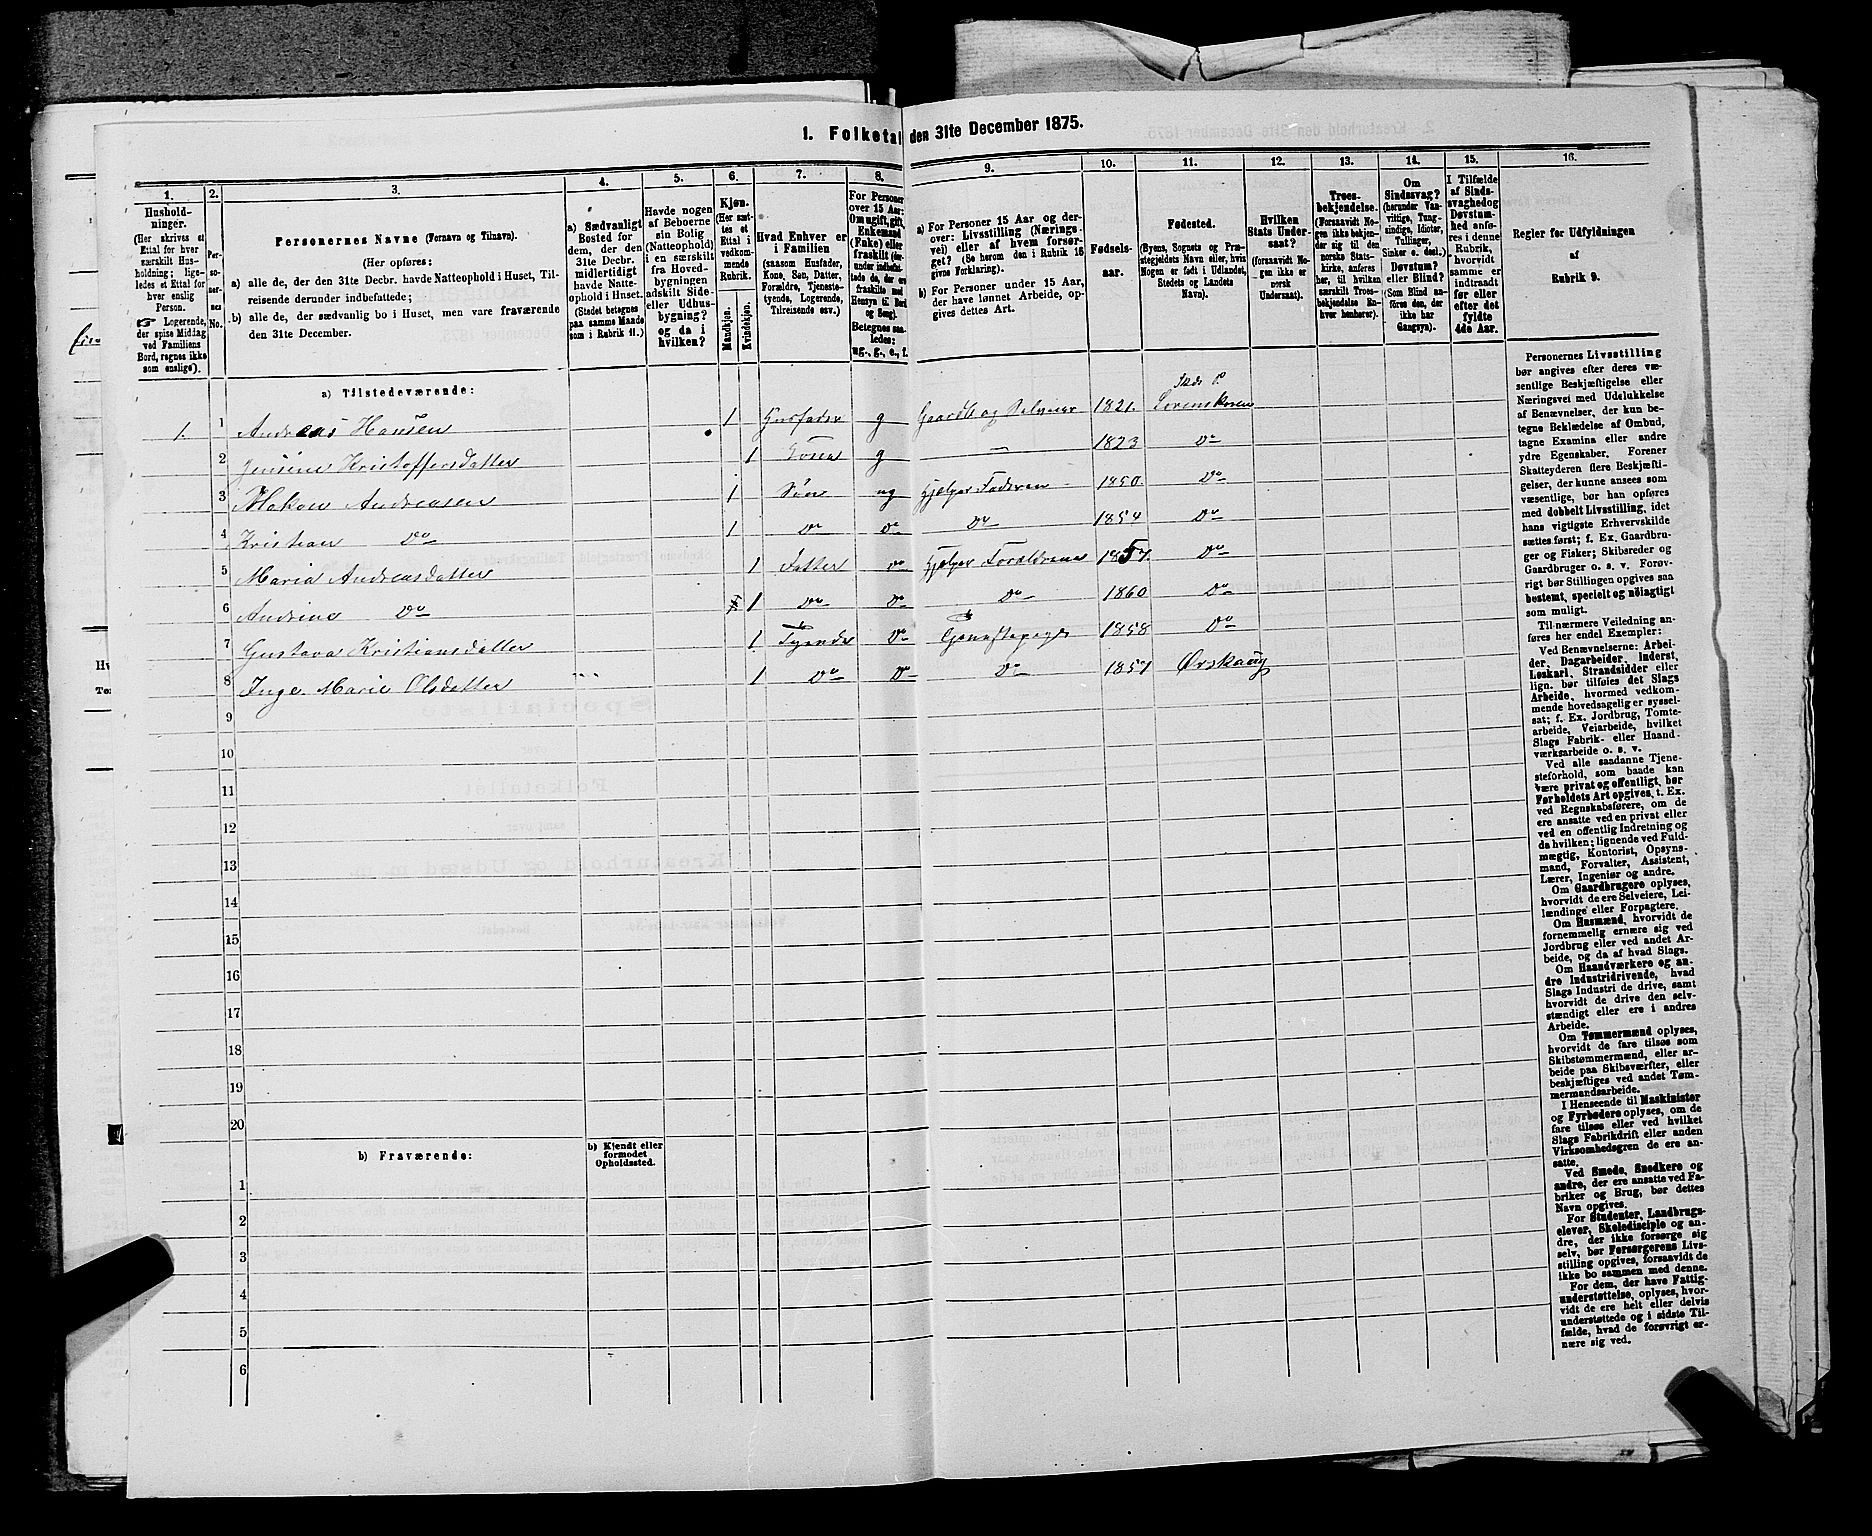 1. Folketal den 31te December 1875.
1. 2. 3. 4. 5. 6. 7. 8. 9. 10. 11. 12. 13. 14. 15. 16.
Hushold-
ninger.
(Her skrives et
Ettal for hver
særskilt Hus-
holdning; lige-
ledes et Ettal for
hver enslig
Person.
Logerende,
der spise Middag
ved Familiens
Bord, regnes ikke
som enslige).
Per-
so-
ner-
nes
No.
Personernes Navne (Fornavn og Tilnavn).
(Her opføres:
a) alle de, der den 31te Decbr. havde Natteophold i Huset, Til-
reisende derunder indbefattede;
b) alle de, der sædvanlig bo i Huset, men vare fraværende
den 31te December.
a) Sædvanligt
Bosted for
dem, der den
31te Decbr.
midlertidigt
havde Natte-
ophold i Huset.
(Stedet betegnes
paa samme Maade
som i Rubrik 11.)
Havde nogen
af Beboerne
sin Bolig
(Natteophold)
i en særskilt
fra Hoved-
bygningen
adskilt Side-
eller Udhus-
bygning?
og da i
hvilken?
Kjøn.
(Her sæt-
tes et
Ettal i
vedkom-
mende
Rubrik.
Mandkjøn.
Kvindekjøn.
Hvad Enhver er
i Familien
(saasom Husfader,
Kone, Søn, Datter,
Forældre, Tjeneste-
tyende, Logerende,
Tilreisende osv.)
For Personer
over 15 Aar:
Om ugift, gift,
Enkemand
(Enke) eller
fraskilt (der-
under indbefat-
tede de, der ere
fraskilte med
Hensyn til Bord
og Seng).
Betegnes saa-
ledes:
ug., g., e., f.
a) For Personer 15 Aar og der-
over: Livsstilling (Nærings-
vei) eller af hvem forsør-
get? (Se herom den i Rubrik 16
givne Forklaring).
b) For Personer under 15 Aar,
der have lønnet Arbeide, op-
gives dettes Art.
Fødsels-
aar.
Fødested.
(Byens, Sognets og Præ-
stegjeldets Navn eller, hvis
Nogen er født i Udlandet,
Stedets og Landets
Navn).
Hvilken
Stats Under-
saat?
(forsaavidt No-
gen ikke er
norsk
Undersaat).
Troes-
bekjendelse.
(Forsaavidt No-
gen ikke bekjen-
der sig til den
norske Stats-
kirke, anføres
her, til hvilken
særskilt Troes-
bekjendelse En-
hver henhører).
Om
Sindssvag?
(herunder Van-
vittige, Tung-
sindige, Idioter,
Tullinger,
Sinker o. desl.)
Døvstum?
eller Blind?
(Som Blind an-
føres den, der
ikke har
Gangsyn).
I Tilfælde
af Sinds-
svaghed og
Døvstum-
hed anfø-
res i denne
Rubrik,
hvorvidt
samme er
indtraadt
før eller
efter det
fyldte
4de Aar.
Regler for Udfyldningen
af
Rubrik 9.
a) Tilstedeværende:
1. 1 Andreas Hansen 1 Husfader g Gaardb og Selveier 1821. Lørenskoven
2 Jensine Kristoffersdatter 1 Kone g — 1823 Do
3 Hakon Andreasen 1 Søn ug hjælper Faderen 1850 Do
4 Kristian Do 1 Do Do Do 1854 Do
5 Maria Andreasdatter 1 Datter Do hjælper Forældrene 1857. Do
6 Andrine Do 1 Do Do Do 1860 Do
7 Gustava Kristiansdatter 1 Tyende Do 1858 Do
8 Inge Marie Olsdatter 1 Do Do Do 1857 Ørskaug
9
10
11
12
13
14
15
16
17
18
19
20
b) Fraværende:
b) Kjendt eller
formodet
Opholdssted.
1
2
3
4
5
6
Personernes Livsstilling
bør angives efter deres væ-
sentlige Beskjæftigelse eller
Næringsvei med Udelukkelse
af Benævnelser, der kun be-
tegne Beklædelse af Ombud,
tagne Examina eller andre
ydre Egenskaber. Forener
Skatteyderen flere Beskjæfti-
gelser, der kunne ansees som
væsentlige, bør han opføres
med dobbelt Livsstilling, idet
hans vigtigste Erhvervskilde
sættes først; f. Ex. Gaardbru-
ger og Fisker; Skibsreder og
Gaardbruger o. s. v. Forøv-
rigt bør Stillingen opgives saa
bestemt, specielt og nøiagtigt
som muligt.
Til nærmere Veiledning an-
føres her endel Exempler:
Ved Benævnelserne: Arbei-
der, Dagarbeider, Inderst,
Løskarl, Strandsidder eller
lign. bør tilføies det Slags
Arbeide, hvormed vedkom-
mende hovedsagelig er syssel-
sat; f. Ex. Jordbrug, Tomte-
arbeide, Veiarbeide, hvilket
Slags Fabrik- eller Haand-
værksarbeide o. s. v.
Ved alle saadanne Tjene-
steforhold, som baade kan
være privat og offentligt, bør
Forholdets Art opgives, t. Ex.
ved Regnskabsførere, om de
ere ansatte ved en privat eller
ved en offentlig Indretning og
da hvilken; lignende ved Fuld-
mægtig, Kontorist, Opsyns-
mand, Forvalter, Assistent,
Lærer, Ingeniør og andre.
Om Gaardbrugere oplyses,
hvorvidt de ere Selveiere, Lei-
lændinge eller Forpagtere.
Om Husmænd, hvorvidt de
fornemmelig ernære sig ved
Jordbrug eller ved andet Ar-
beide, og da af hvad Slags.
Om Haandværkere og an-
dre Industridrivende, hvad
Slags Industri de drive, samt
hvorvidt de drive den selv-
stændigt eller ere i andres
Arbeide.
Om Tømmermænd oplyses,
hvorvidt de fare tilsøs som
Skibstømmermænd, eller ar-
beide paa Skibsværfter, eller
beskjæftiges ved andet Tøm-
mermandsarbeide.
I Henseende til Maskinister
og Fyrbødere oplyses, om de
fare tilsøs eller ved hvilket
Slags Fabrikdrift eller anden
Virksomhedsgren de ere an-
satte.
Ved Smede, Snedkere og
andre, der ere ansatte ved Fa-
briker og Brug, bør dettes
Navn opgives.
For Studenter, Landbrugs-
elever, Skoledisciple og an-
dre, der ikke forsørge sig
selv, bør Forsørgerens Livs-
stilling opgives, forsaavidt de
ikke bo sammen med denne.
For dem, der have Fattig-
understøttelse, oplyses, hvor-
vidt de ere helt eller delvis
understøttede og i sidste Til-
fælde, hvad de forøvrigt er-
nære sig ved.